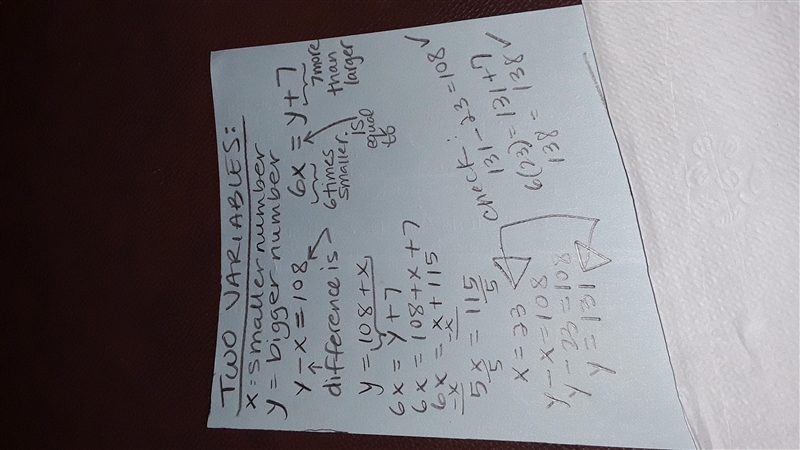 TWO VARIABLES:
x = smaller number
y = bigger number
y - x = 108
difference is
6x = y + 7
6 times smaller.
is equal to
7 more than larger
y = 108 + x
6x = y + 7
6x = 108 + x + 7
6x = x + 115
-x -x
5x = 115
5 5
x = 23
y - x = 108
y - 23 = 108
y = 131
check:
131 - 23 = 108 ✓
6(23) = 131 + 7
138 = 138 ✓